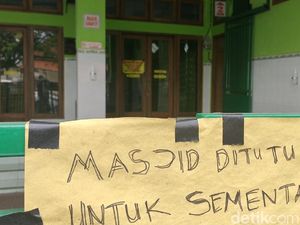 MASJID DITUTU
UNTUK SEMENTA
detikcom